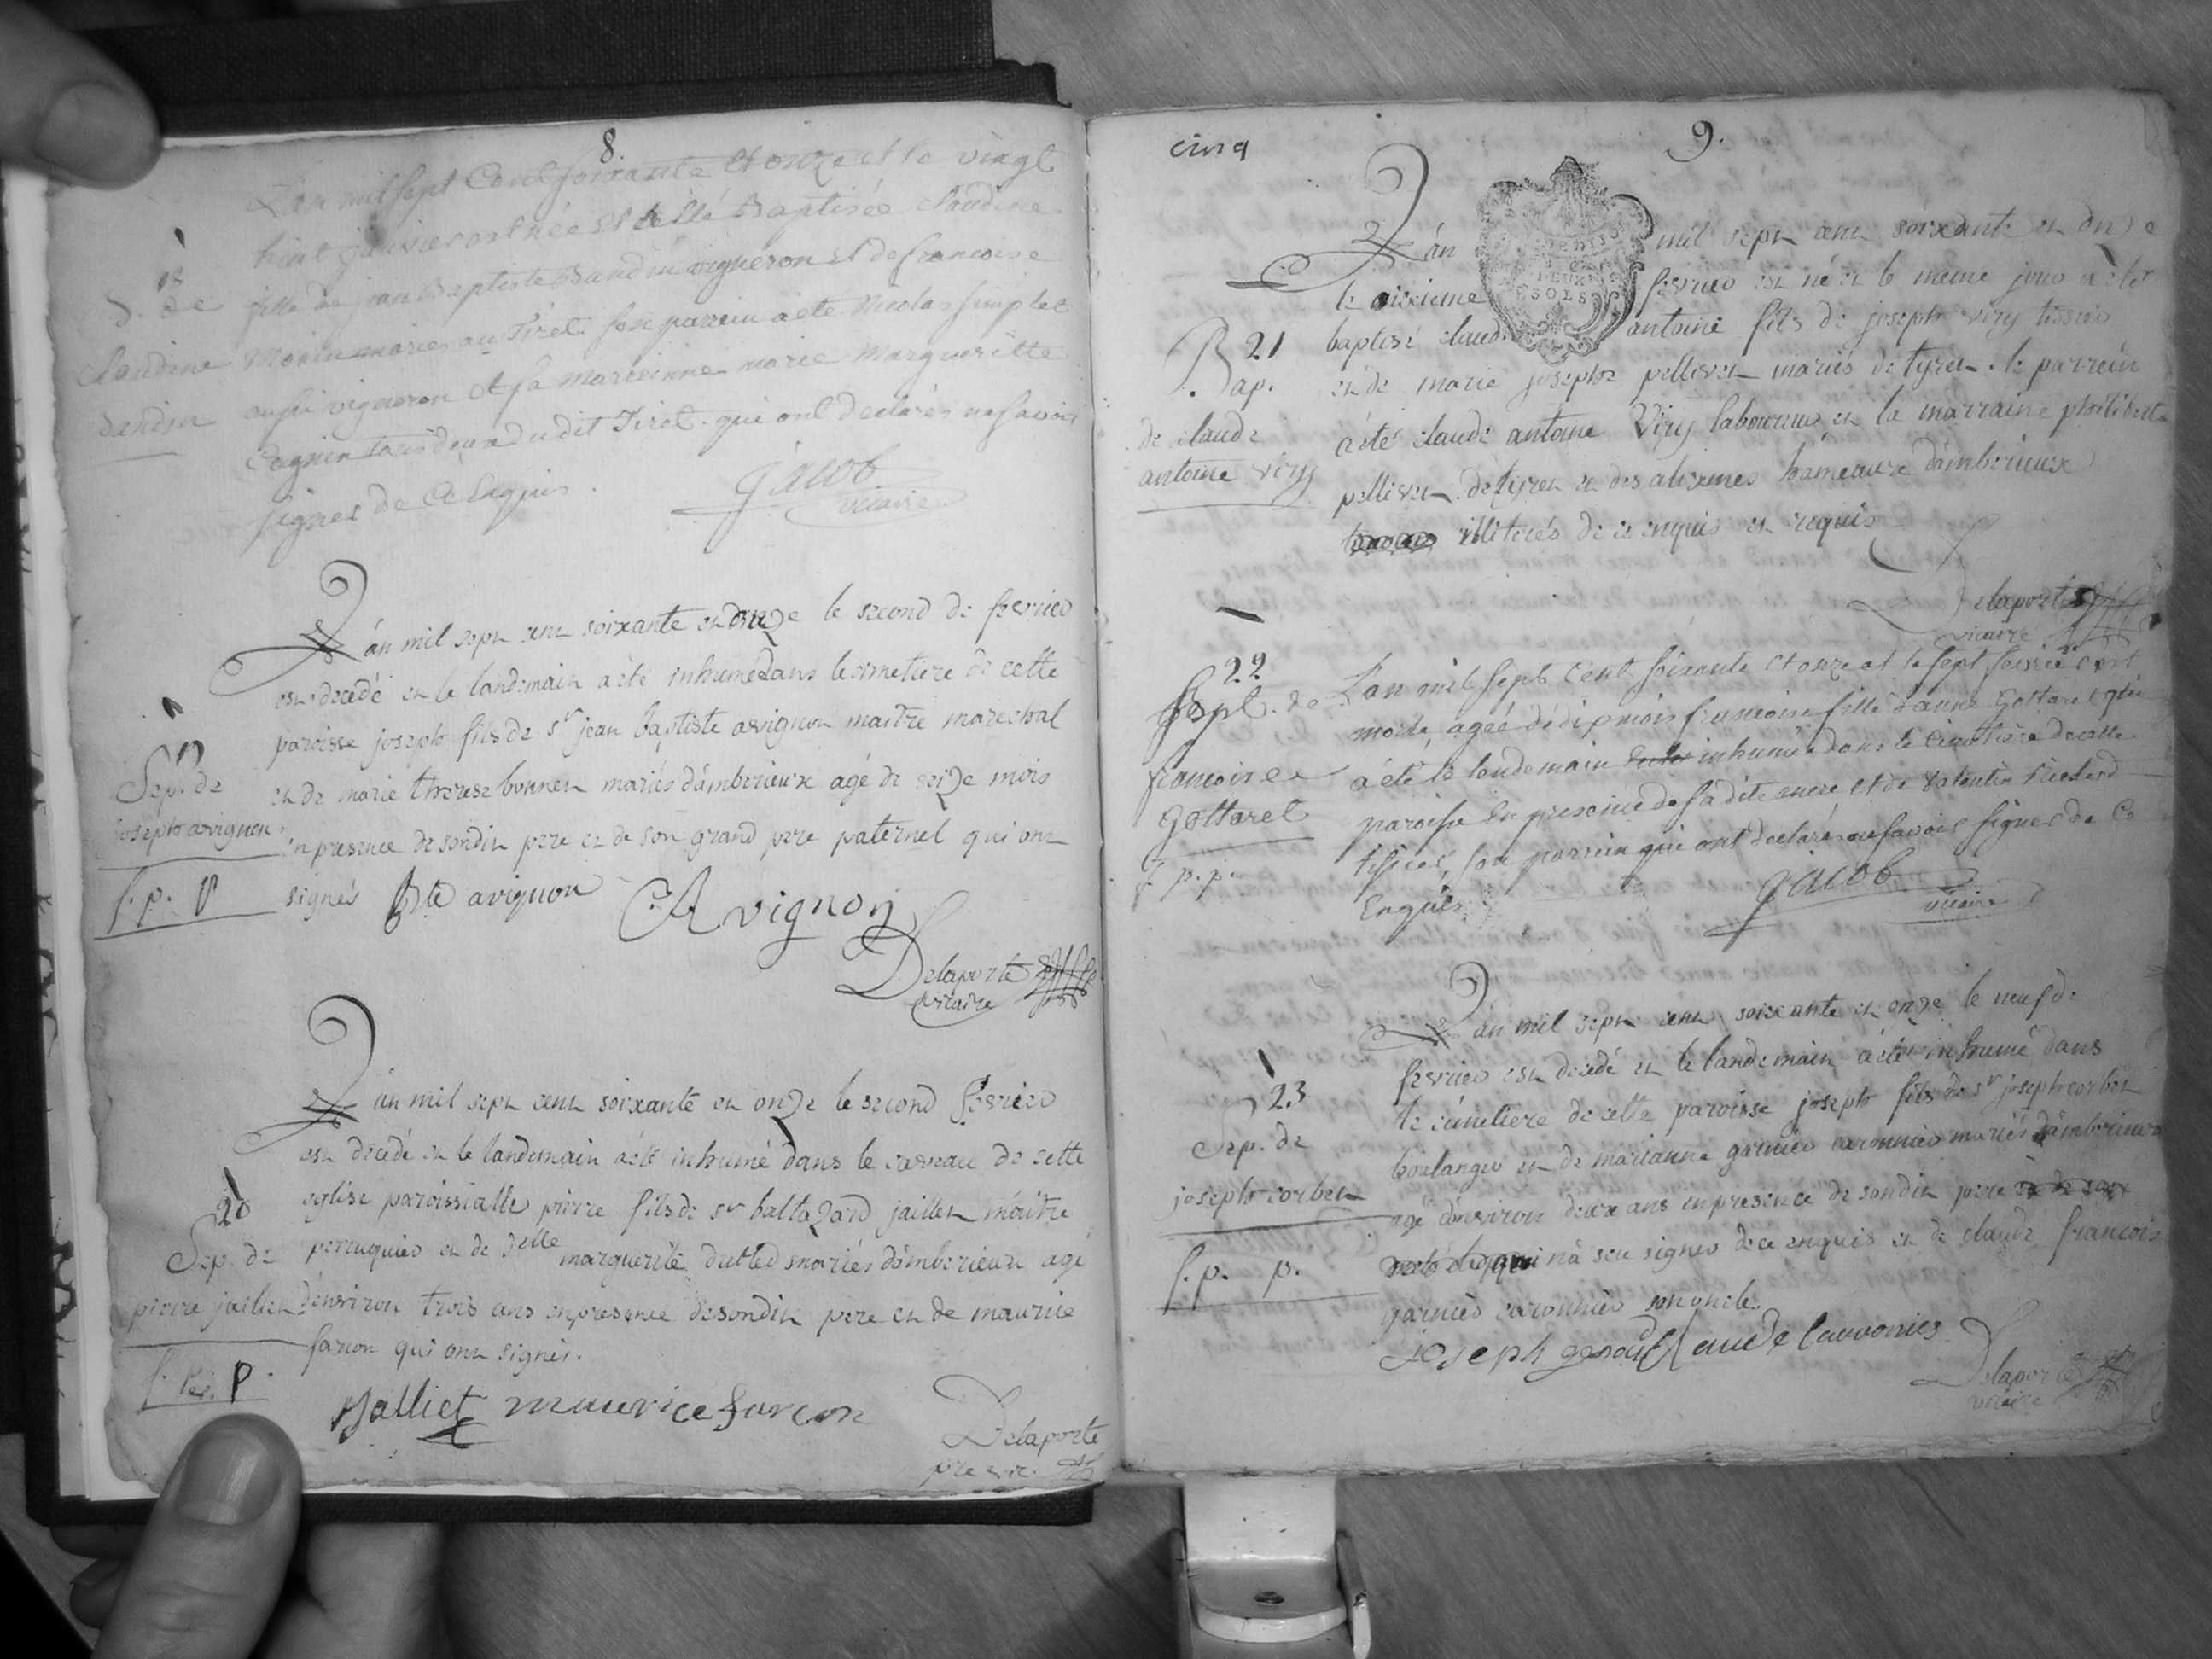 8.
L'an mil sept Cent soixante et onze et le vingt
huit janvier est née et a été Baptisée claudine
fille de jean Baptiste Dandin vigneron et de francoise
Monin mariés au Tiret son parrein a été Nicolas simplet
aussi vigneron et sa Marrienne marie Margueritte
Cagnin tous deux dudit Tiret qui ont declarés ne savoir
signer de ce Enquis.
jacob
vicaire
18
B. de
claudine
dandin
L'án mil sept cent soixante et onze le second de fevrier
est decedé et le landemain a été inhumé dans le cimetiere de cette
paroisse joseph fils de sr jean baptiste avignon maitre marechal
et de marie therese bonnet mariés d'amberieux agé de seize mois
en presence de sondit pere et de son grand pere paternel qui ont
signés Bte avignon C. Avignon
Delaporte
vicaire
19
Sep. de
joseph avignon
f. p. p
L'án mil sept cent soixante et onze le second fevrier
est decedé et le landemain a été inhumé dans le caveau de cette
eglise paroissialle pierre fils de sr baltazard jaillet maitre
perruquier et de delle marguerite duttel mariés d'amberieux agé
d'environ trois ans en presence de sondit pere et de maurice
farcon qui ont signés.
Jalliet maurice farcon
Delaporte
pre vic.
20
Sep. de
pierre jaillet
f. p. P
cinq
9.
L'án mil sept cent soixante et onze
le sixieme fevrier est né et le meme jour a été
baptisé claude antoine fils de joseph viry tissier
et de marie josephe pellevet mariés de tyret. le parrein
a été claude antoine Viry laboureur et la marraine philiberte
pellevet. de tyret et des alixmes hameaux d'amberieux
illiterés de ce enquis et requis
Delaporte
vicaire
21
Bap.
de claude
antoine viry
L'an mil sept Cent soixante et onze et le sept fevrie est
morte, ageé de dix mois francoise fille d'anne Gottaret qui
a été le lendemain inhumée dans le Cimetière de cette
paroisse En presence de sa dite mere et de valentin Richerd
tissier, son parrein qui ont declarés ne savoir signer de Ce
Enquis
jacob
vicaire
22
Sepl. de
francoise
Gottaret
f. p. p.
L'án mil sept cent soixante et onze le neuf de
fevrier est decedé et le landemain a été inhumé dans
le cimetiere de cette paroisse joseph fils de sr joseph corbet
boulanger et de marianne garnier caronnier mariés d'amberieux
agé d'environ deux ans en presence de sondit pere
qui n'a seu signer de ce enquis et de claude francois
garnier caronnier son oncle.
joseph Claude Cauronier
Delaporte
vicaire
23
Sep. de
joseph corbet
f. p. p.